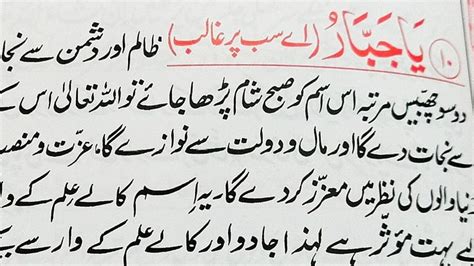 ۱۰ یَاجَبَّارُ (اے سب پر غالب) ظالم اور دشمن سے نجا
دو سو چھبیس مرتبہ اس اسم کو صبح شام پڑھا جائے تو اللہ تعالیٰ اس کے
ے نجات دے گا اور مال و دولت سے نوازے گا، عزت و منصہ
یا والوں کی نظر میں معزز کر دے گا۔ یہ اِسم کالے عِلم کے وا
ے بہت مؤثر ہے لہٰذا جادو اور کالے علم کے وار سے بچ